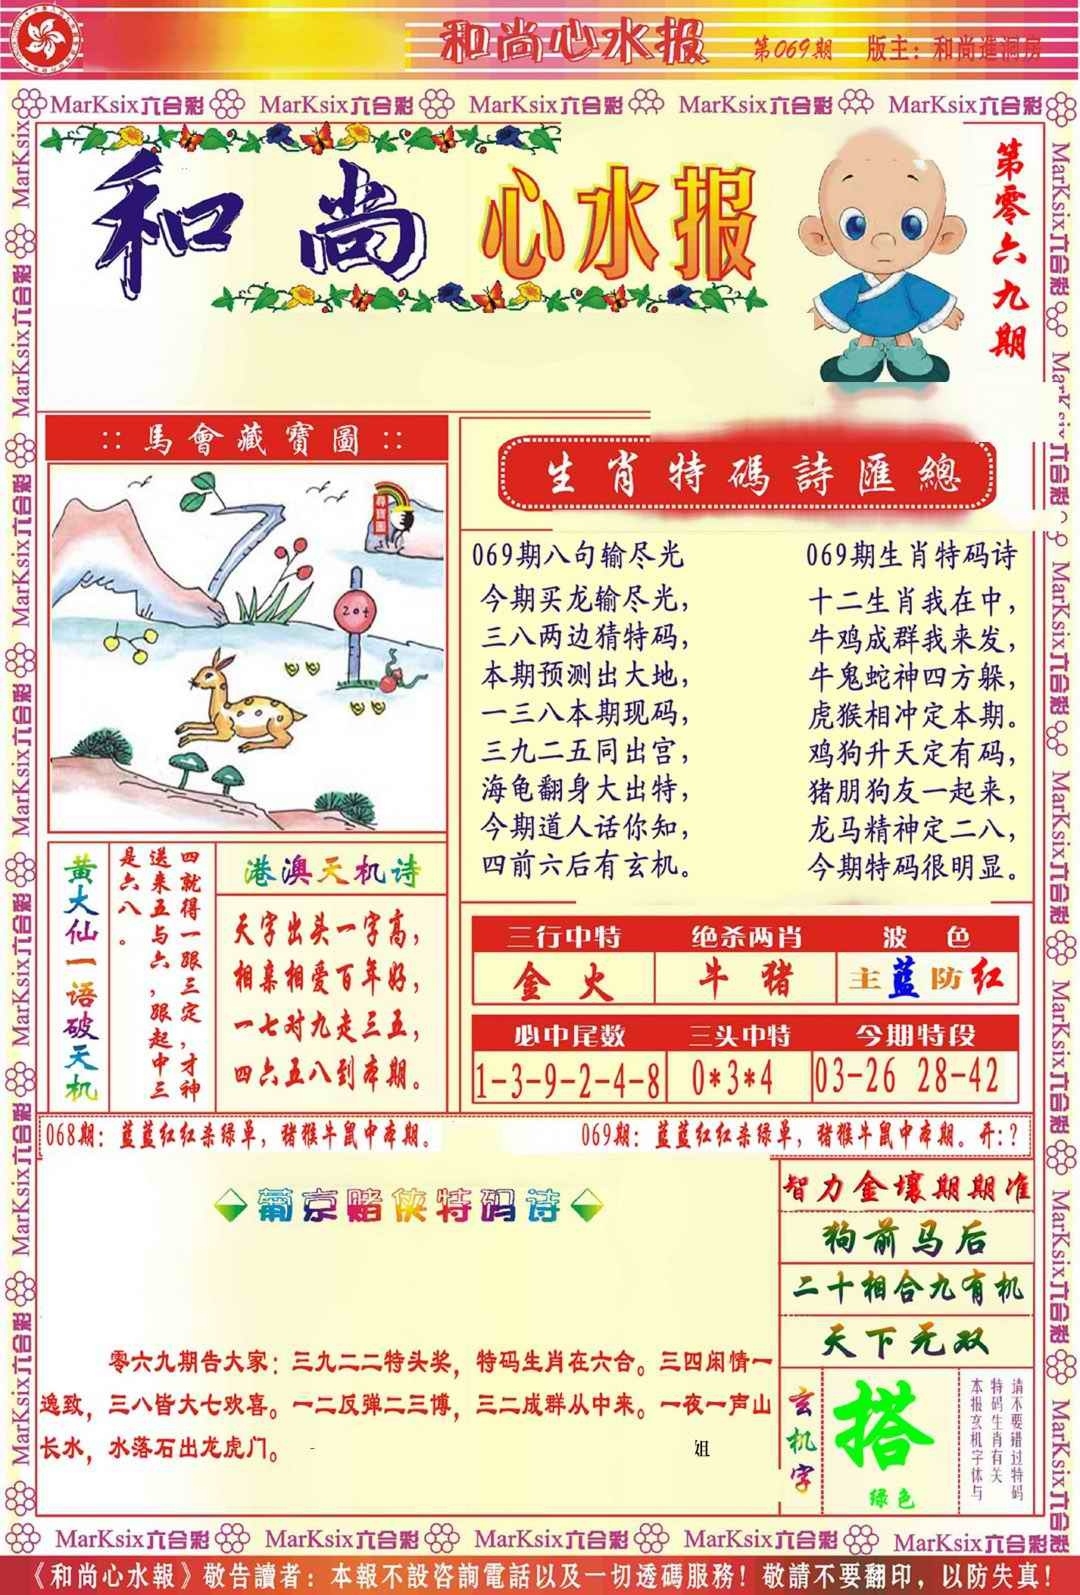 和尚心水报 第069期 版主：和尚進洞房
MarKsix六合彩 MarKsix六合彩 MarKsix六合彩 MarKsix六合彩 MarKsix六合彩
和尚心水报
第零六九期
::馬會藏寶圖::
尋寶圖
20+
生肖特碼詩匯總
069期八句输尽光
今期买龙输尽光，
三八两边猜特码，
本期预测出大地，
一三八本期现码，
三九二五同出宫，
海龟翻身大出特，
今期道人话你知，
四前六后有玄机。
069期生肖特码诗
十二生肖我在中，
牛鸡成群我来发，
牛鬼蛇神四方躲，
虎猴相冲定本期。
鸡狗升天定有码，
猪朋狗友一起来，
龙马精神定二八，
今期特码很明显。
黄大仙一语破天机
四就得一跟三定，才神
送来五与六，跟起中三
是六八。
港澳天机诗
天字出头一字高，
相亲相爱百年好，
一七对九走三五，
四六五八到本期。
三行中特 绝杀两肖 波色
金火 牛猪 主蓝防红
必中尾数 三头中特 今期特段
1-3-9-2-4-8 0*3*4 03-26 28-42
068期：蓝蓝红红杀绿单，猪猴牛鼠中本期。
069期：蓝蓝红红杀绿单，猪猴牛鼠中本期。开:？
葡京赌侠特码诗
零六九期告大家：三九二二特头奖，特码生肖在六合。三四闲情一
逸致，三八皆大七欢喜。一二反弹二三博，三二成群从中来。一夜一声山
长水，水落石出龙虎门。
姐
智力金壤期期准
狗前马后
二十相合九有机
天下无双
玄机字
搭
绿色
请不要错过特码
特码生肖有关
本报玄机字体与
MarKsix六合彩 MarKsix六合彩 MarKsix六合彩 MarKsix六合彩 MarKsix六合彩
《和尚心水報》敬告讀者：本報不設咨詢電話以及一切透碼服務！敬請不要翻印，以防失真！